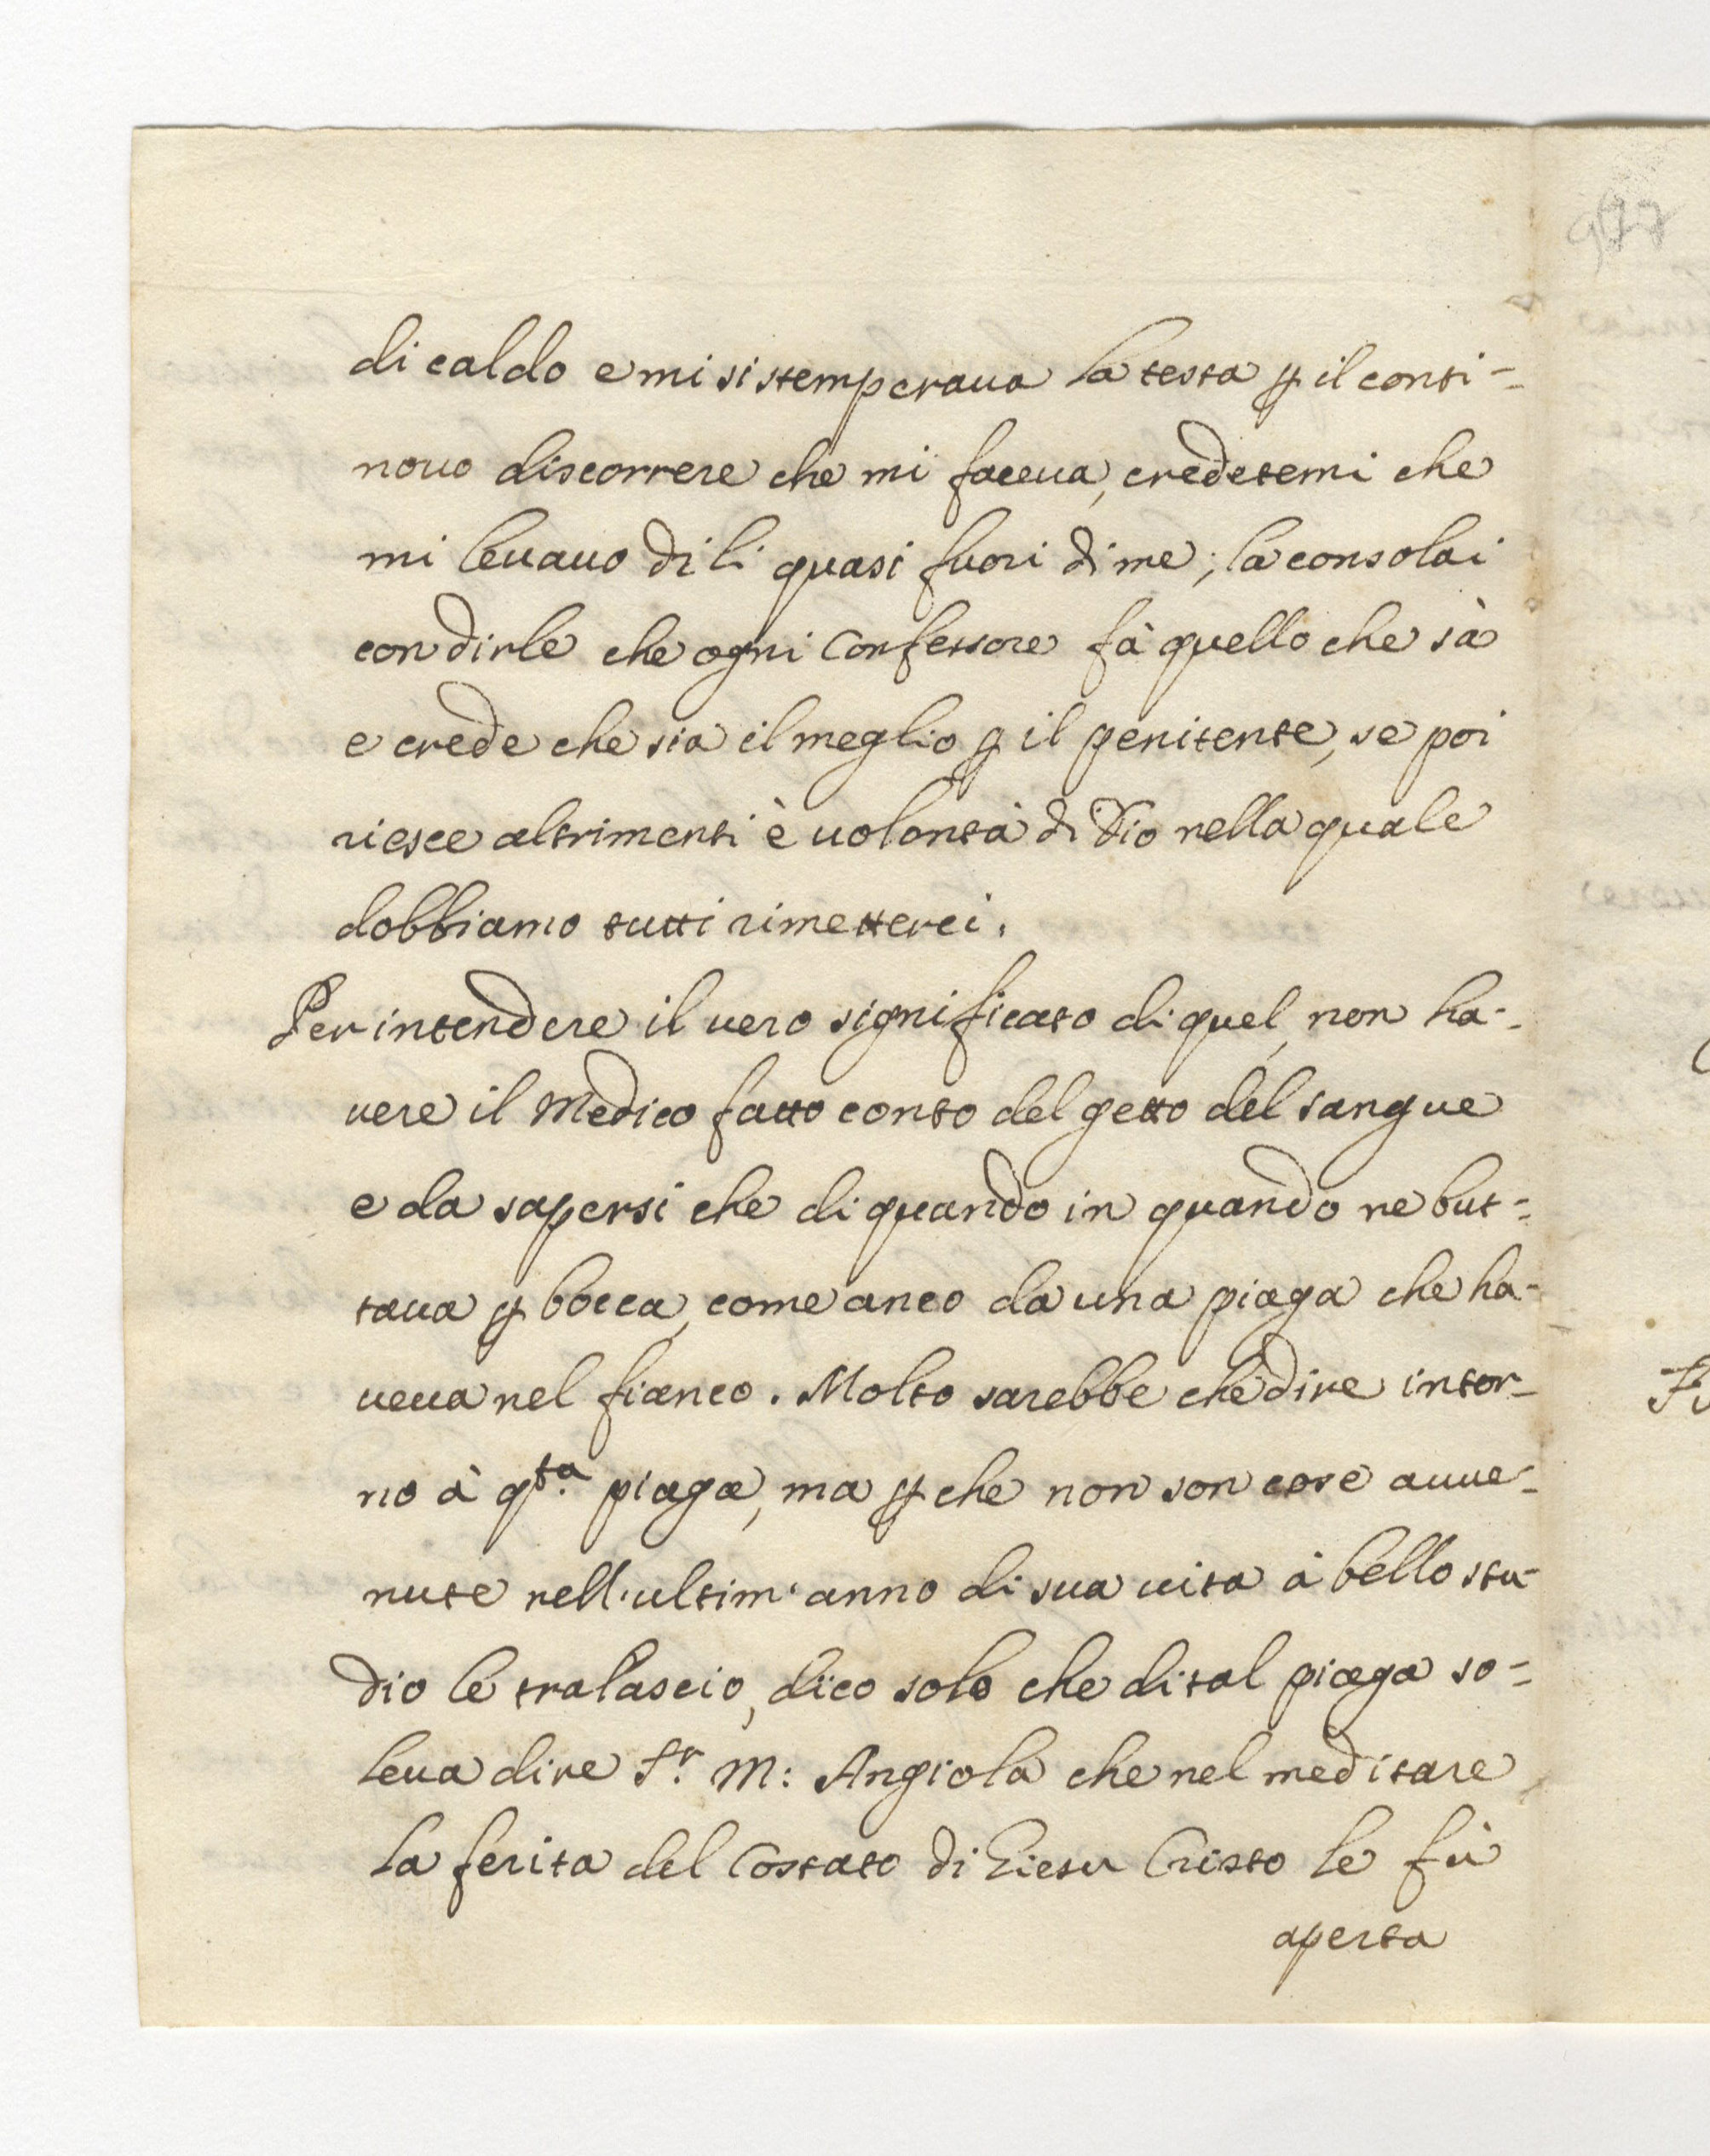 di caldo e mi si stemperaua la testa ꝑ il conti-
nouo discorrere che mi faceua, credetemi che
mi leuauo di li quasi fuori di me; la consolai
con dirle che ogni Confessore fà quello che sà
e crede che sia il meglio ꝑ il penitente, se poi
riesce altrimenti è uolontà di Dio nella quale
dobbiamo tutti rimetterci.
Per intendere il uero significato di quel, non ha-
uere il Medico fatto conto del getto del sangue
e da sapersi che di quando in quando ne but-
taua ꝑ bocca, come anco da una piaga che ha-
ueua nel fianco. Molto sarebbe che dire intor-
no à qta. piaga, ma ꝑche non son cose auue-
nute nell'ultim'anno di sua uita à bello stu-
dio le tralascio, dico solo che di tal piaga so-
leua dire Sr. M: Angiola che nel meditare
la ferita del Costato di Giesu Cristo le fù
aperta